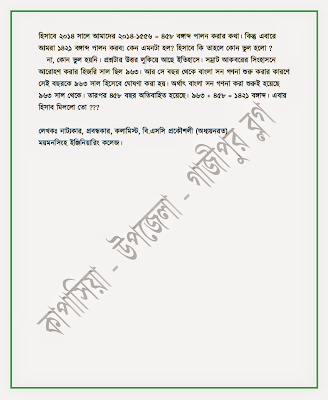 হিসাবে ২০১৪ সালে আমাদের ২০১৪-১৫৫৬ = ৪৫৮ বঙ্গাব্দ পালন করার কথা। কিন্তু এবারে
আমরা ১৪২১ বঙ্গাব্দ পালন করব! কেন এমনটা হল? হিসাবে কি তাহলে কোন ভুল হলো ?
না, কোন ভুল হয়নি। প্রশ্নটার উত্তর লুকিয়ে আছে ইতিহাসে। সম্রাট আকবরের সিংহাসনে
আরোহণ করার হিজরি সাল ছিল ৯৬৩। আর সে বছর থেকে বাংলা সন গণনা শুরু করার কারণে
সেই বছরকে ৯৬৩ সাল হিসেবে ঘোষণা করা হয়। অর্থাৎ বাংলা সন গণনা করা শুরুই হয়েছে
৯৬৩ সাল থেকে। তারপর ৪৫৮ বছর অতিবাহিত হয়েছে। ৯৬৩ + ৪৫৮ = ১৪২১ বঙ্গাব্দ। এবার
হিসাব মিললো তো ???
লেখকঃ নাট্যকার, প্রবন্ধকার, কলামিস্ট, বি.এসসি প্রকৌশলী (অধ্যয়নরত)
ময়মনসিংহ ইঞ্জিনিয়ারিং কলেজ।
কাপাসিয়া - উপজেলা - গাজীপুর ব্লগ